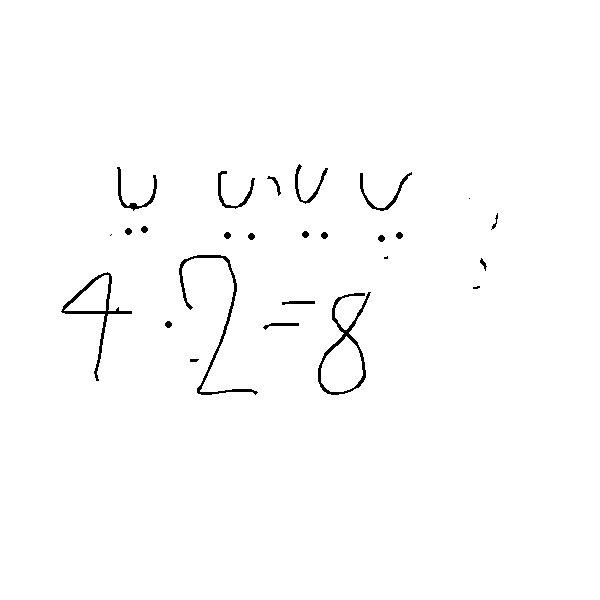 4 · 2 = 8